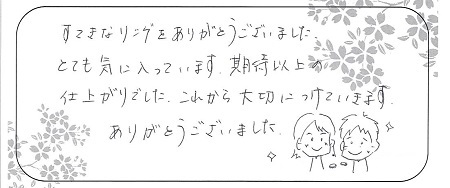 すてきなリングをありがとうございました.
とても気に入っています. 期待以上の
仕上がりでした. これから大切につけていきます.
ありがとうございました.